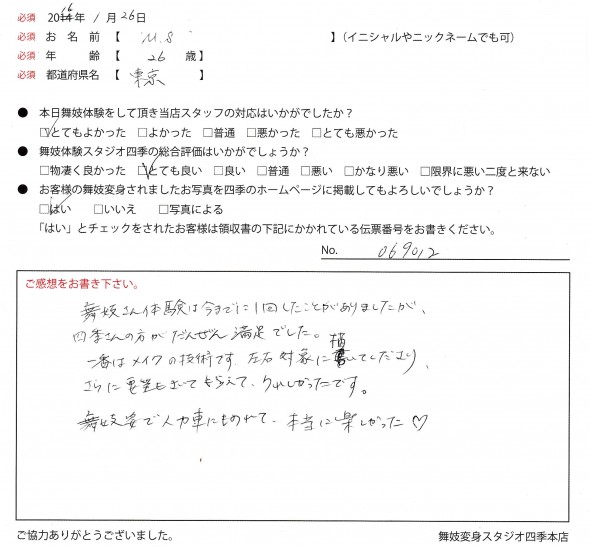 必須 2016年 1月26日
必須 お名前【 M.S 】(イニシャルやニックネームでも可)
必須 年齢【 26 歳】
必須 都道府県名【 東京 】
● 本日舞妓体験をして頂き当店スタッフの対応はいかがでしたか?
□とてもよかった □よかった □普通 □悪かった □とても悪かった
● 舞妓体験スタジオ四季の総合評価はいかがでしょうか?
□物凄く良かった □とても良い □良い □普通 □悪い □かなり悪い □限界に悪い二度と来ない
● お客様の舞妓変身されましたお写真を四季のホームページに掲載してもよろしいでしょうか?
□はい □いいえ □写真による
「はい」とチェックをされたお客様は領収書の下記にかかれている伝票番号をお書きください。
No. 069012
ご感想をお書き下さい。
舞妓さん体験は今までに1回したことがありましたが、
四季さんの方がだんぜん満足でした。
一番はメイクの技術です。左右対象に描いてくださり、
さらに要望もきいてもらえて、うれしかったです。
舞妓姿で人力車にものれて、本当に楽しかった♡
ご協力ありがとうございました。
舞妓変身スタジオ四季本店